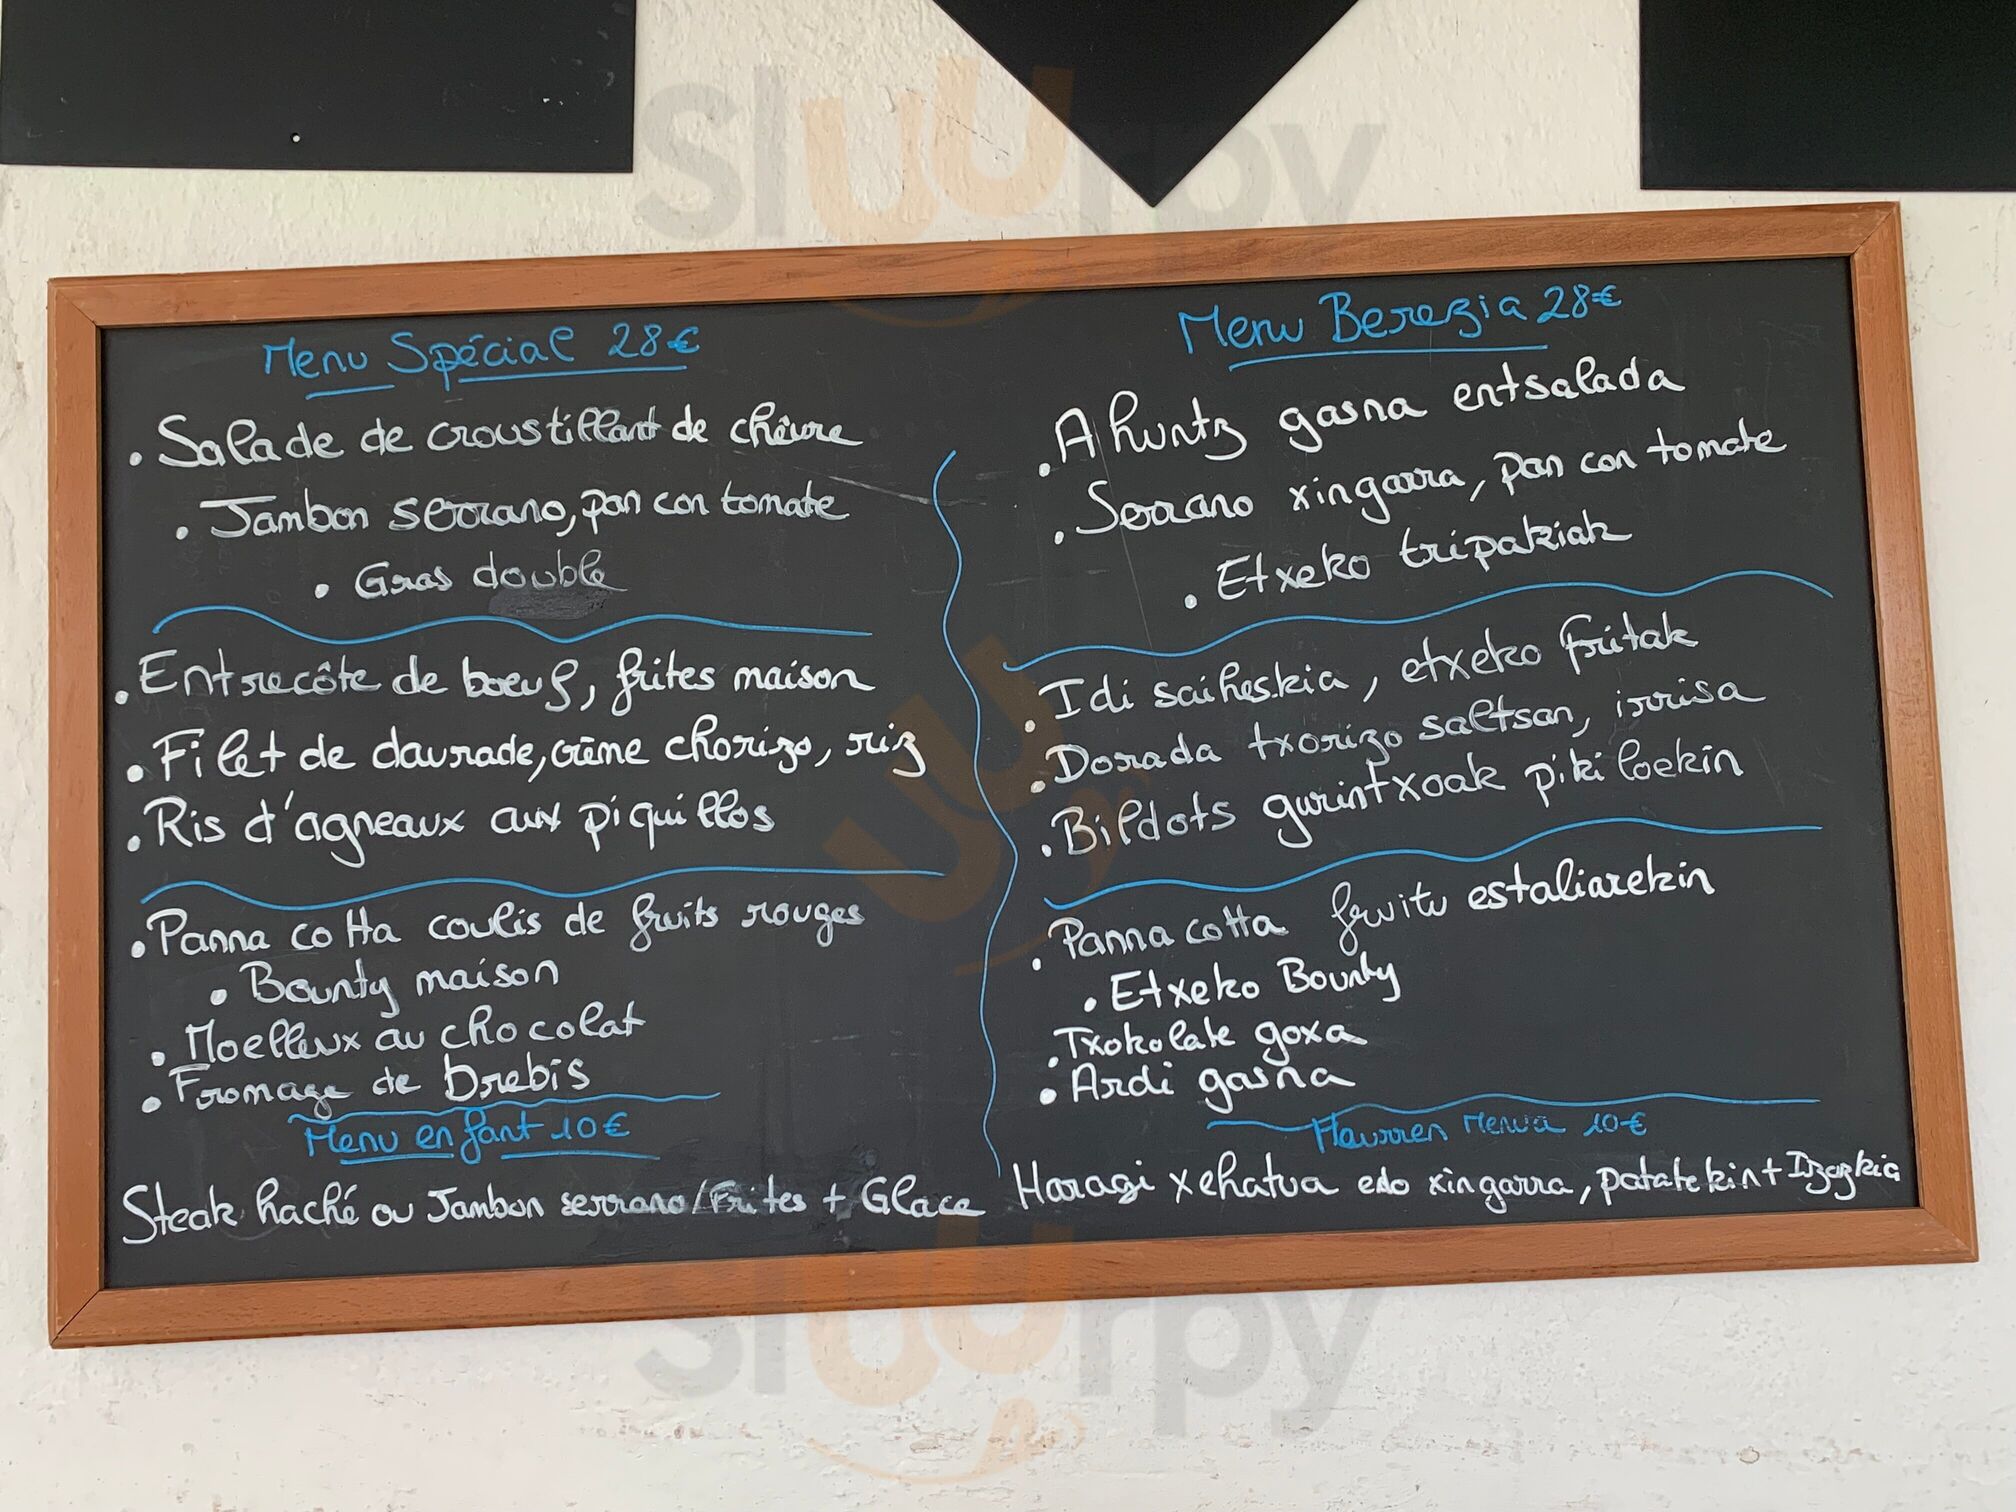 Menu Spécial 28€
• Salade de croustillant de chêvre
• Jambon serrano, pan con tomate
• Gras double
• Entrecôte de boeuf, frites maison
• Filet de daurade, crème chorizo, riz
• Ris d'agneaux aux piquillos
• Panna cotta coulis de fruits rouges
• Bounty maison
• Moelleux au chocolat
• Fromage de brebis
Menu enfant 10€
Steak haché ou Jambon serrano/Frites + Glace
Menu Berezia 28€
• Ahuntz gasna entsalada
• Serrano xingarra, pan con tomate
• Etxeko tripakiak
• Idi saiheskia, etxeko fritak
• Dorada txorizo saltsan, irrisa
• Bildots gurintxoak piki loekin
• Panna cotta fruitu estaliarekin
• Etxeko Bounty
• Txokolate goxa
• Ardi gasna
Haurren Menua 10€
Haragi xehatua edo xingarra, patatekin + Izozkia
sluurpy
sluurpy